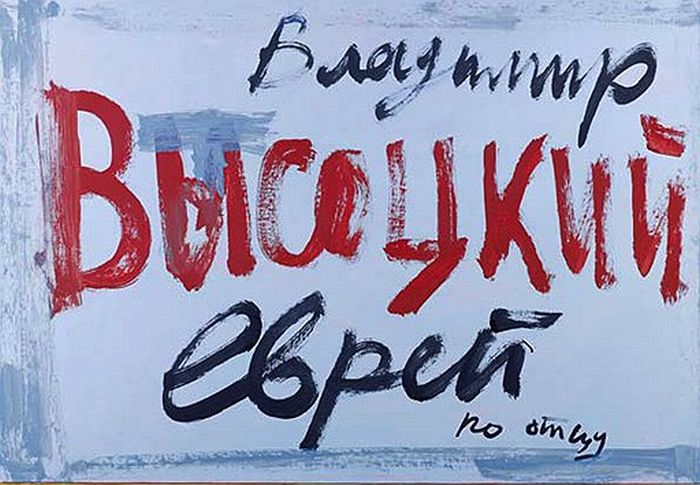 Владимир
Высоцкий
еврей
по отцу